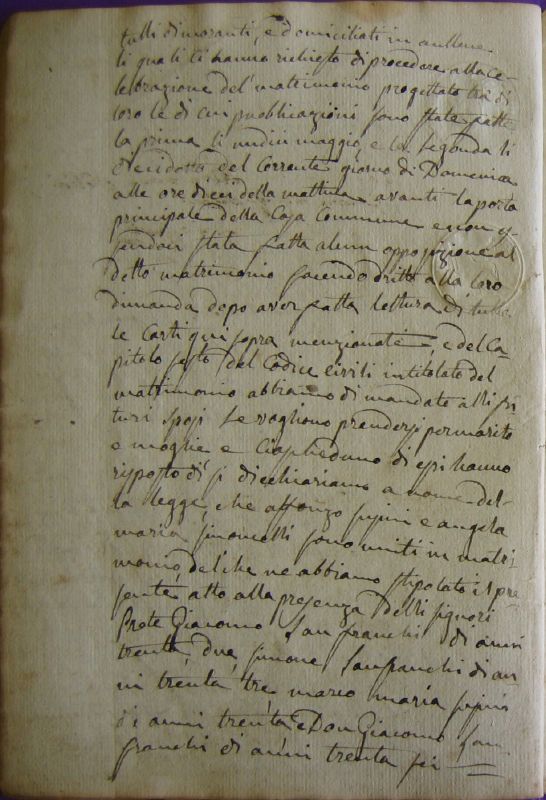 tutti dimoranti, e domiciliati in aullene
li quali ci hanno richiesto di procedere alla ce-
lebrazione del matrimonio progettato trà di
loro le di cui pubblicazioni sono state fatte
la prima li undici maggio, e la segonda li
diecidotto del Corrente giorno di Domenica
alle ore dieci della mattina avanti la porta
principale della Casa Commune e non es
sendoci stata fatta alcun opposizione al
detto matrimonio facendo dritto alla loro
dumanda dopo aver fatta lettura di tutte
le Carti qui sopra menzionate e del Ca-
pitolo sesto del Codice Civili intitolato del
mattrimonio abbiamo dimandato alli fu
turi sposi se vogliono prendersi per marito
e moglie e ciascheduno di essi hanno
risposto di si diechiariamo a nome del-
la legge, che
maria simonelli sono uniti in matri
monio, del che ne abbiamo stipolato il pre
sente atto alla presenza delli signori
Prete Giacomo Lanfranchi di anni
trenta due, simone Lanfranchi di an
ni trenta tre marco maria
di anni trenta e Don Giacomo Lan
franchi di anni trenta sei